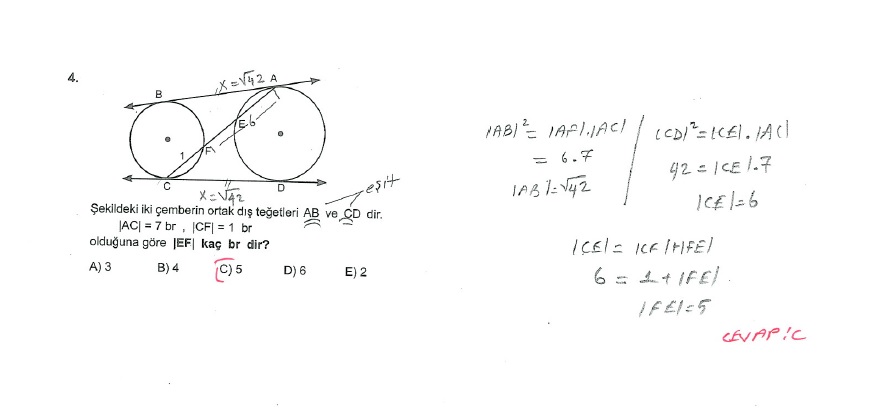 4.
x=√42 A
B
E 6
1 F
C D
x=√42
eşit
Şekildeki iki çemberin ortak dış teğetleri AB ve CD dir.
|AC| = 7 br , |CF| = 1 br
olduğuna göre |EF| kaç br dir?
A) 3 B) 4 C) 5 D) 6 E) 2
|AB|² = |AF|.|AC|
= 6.7
|AB|=√42
|CD|²=|CE|.|AC|
42 = |CE|.7
|CE|=6
|CE|= |CF|+|FE|
6 = 1+|FE|
|FE|=5
CEVAP:C